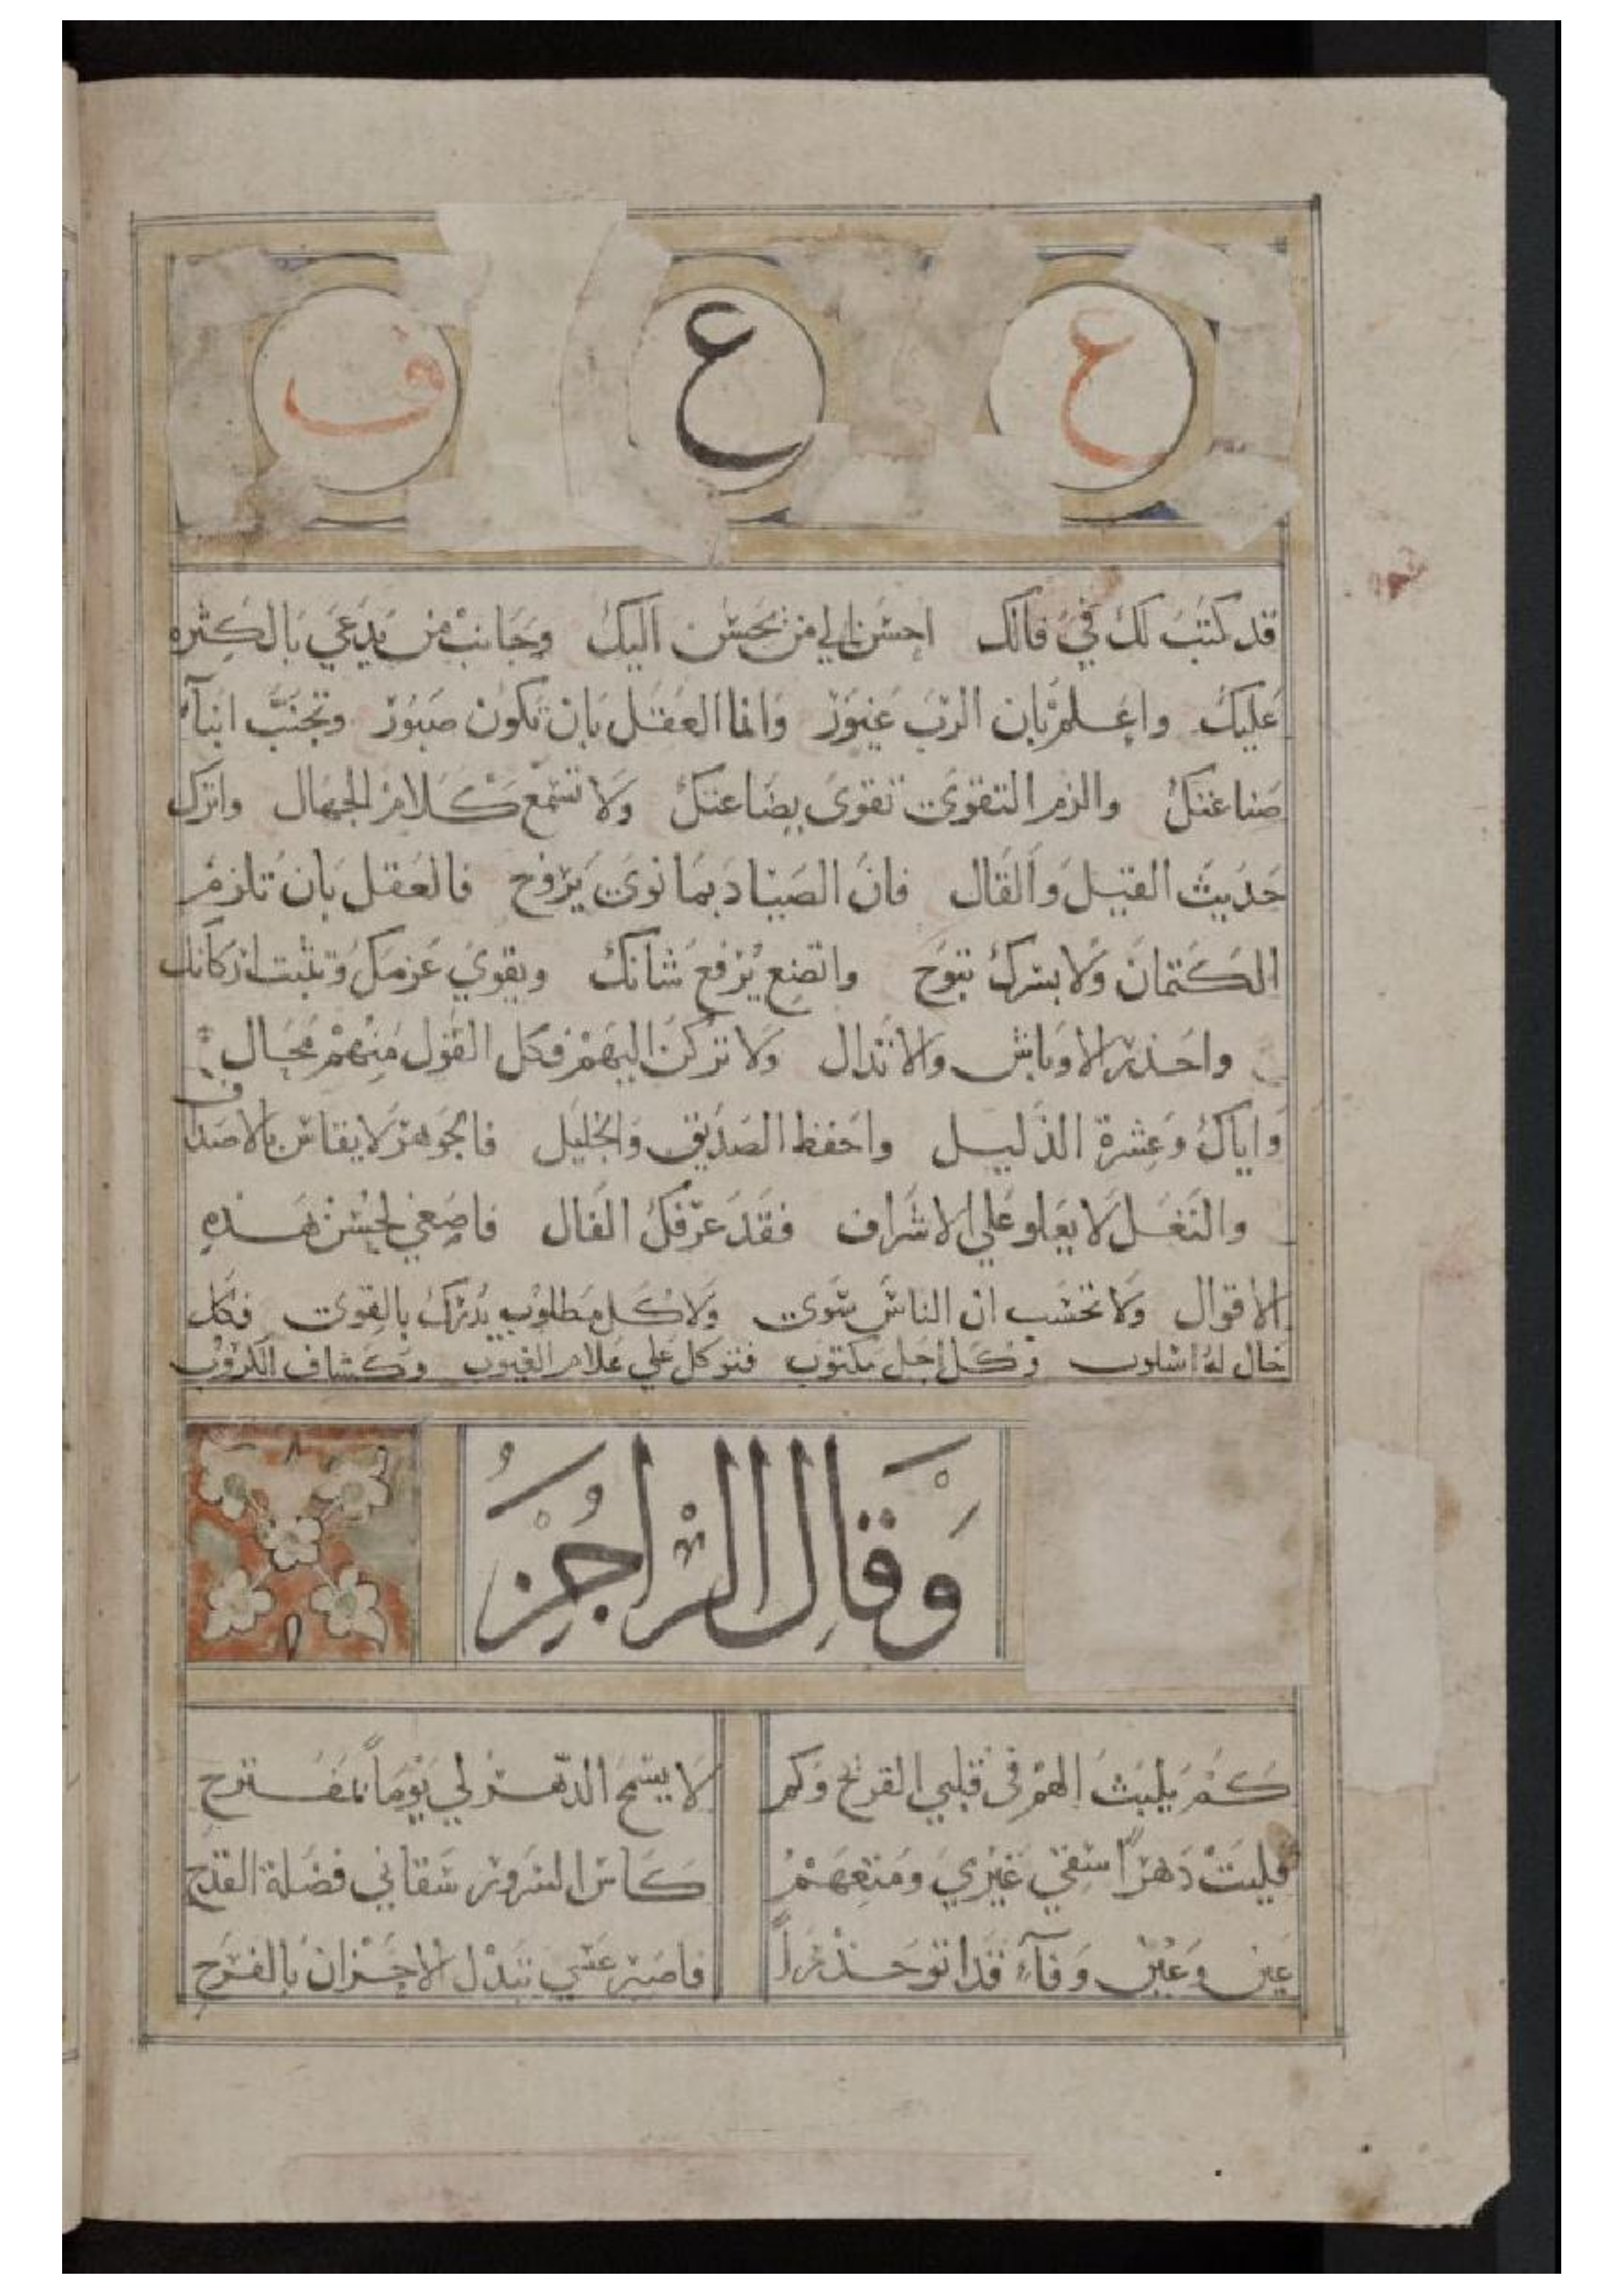 ع ع ف
قد كتب لك في فالك احسن الي من يحسن اليك وجانب من يدعي بالكثره
عليك واعلم بان الرب غيور وانما العقل بان تكون صبور وتجنب ابنآء
صناعتك والزم التقوى تقوى بضاعتك ولا تسمع كلام الجهال واترك
حديث القيل والقال فان الصياد بما نوى يروح فالعقل بان تلزم
الكتمان ولا بسرك تبوح واتضع يرفع شانك ويقوي عزمك وتثبت اركانك
واحذر الاوباش والاندال ولا تركن اليهم فكل القول منهم محال
واياك وعشرة الذليل واحفظ الصديق والخليل فالجوهر لا يقاس بالاصداف
والنغل لا يعلو علي الاشراف فقد عرفك الفال فاصغي لحسن هذه
الاقوال ولا تحسب ان الناس سوى ولا كل مطلوب يدرك بالقوى فكل
حال له اسلوب وكل اجل مكتوب فتوكل علي علام الغيوب وكشاف الكروب
وقال الراجز
كم يلبث الهم في قلبي القرح وكم لا يسمح الدهر لي يوماً بمفترح
فليت دهراً سقي غيري ومتعهم كاس السرور سقاني فضلة القدح
عين وعين وفآء قد اتو حذراً فاصبر عسي تبدل الاحزان بالفرح